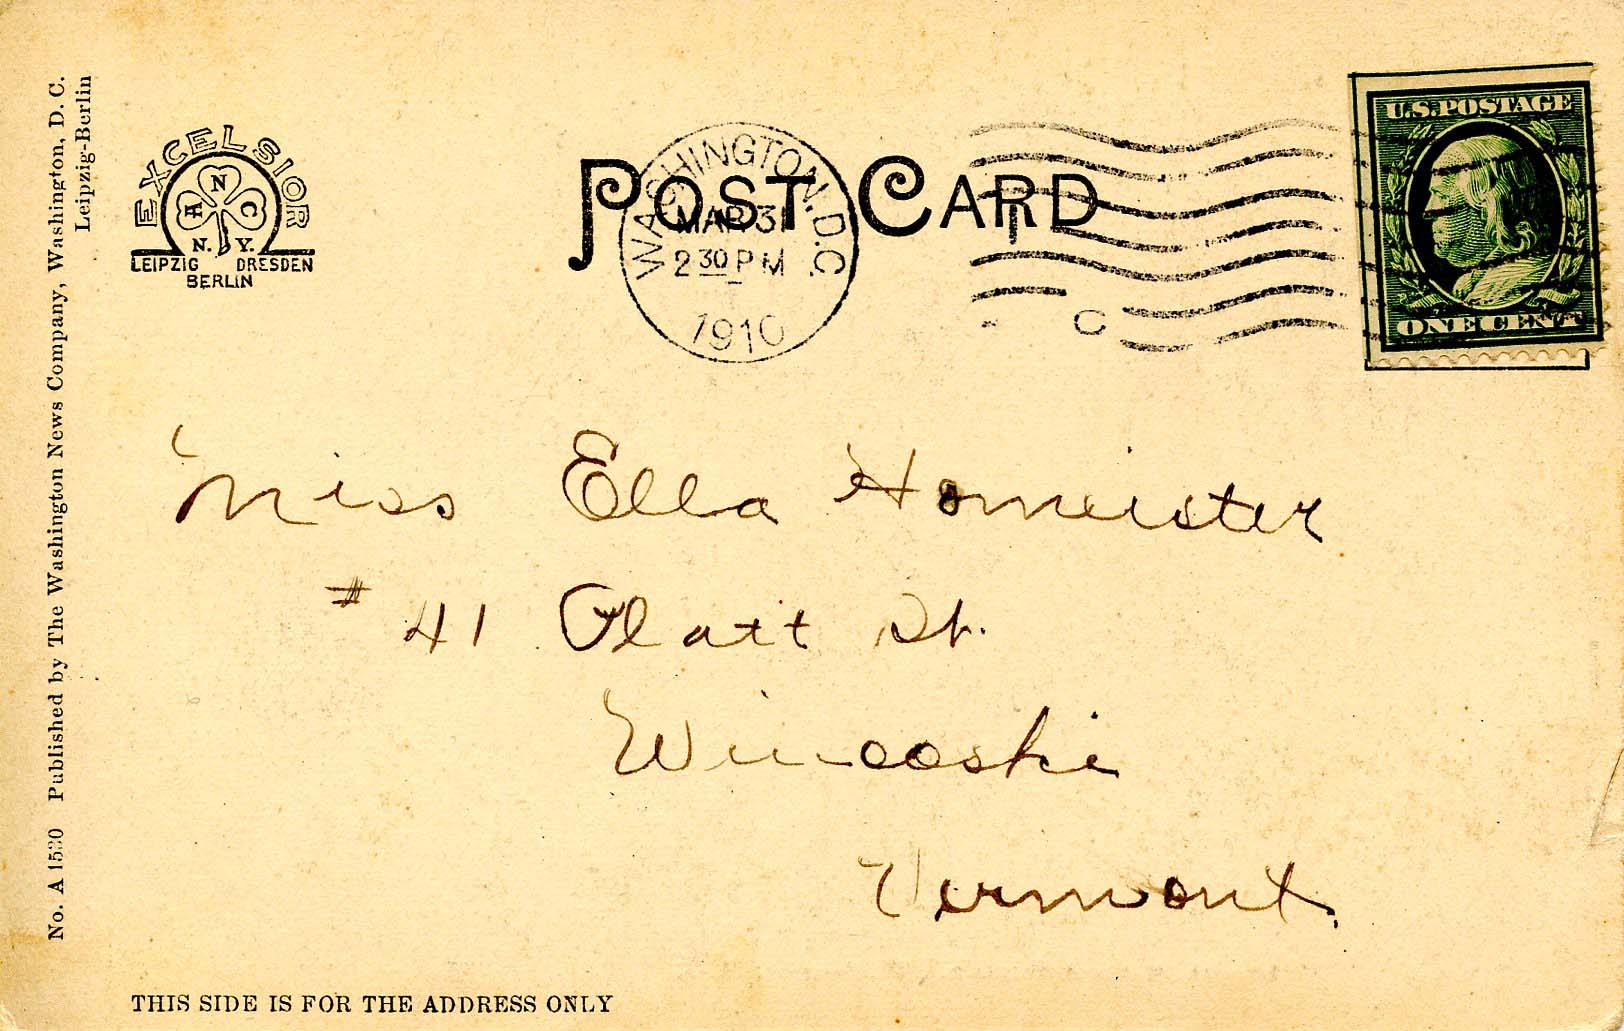 No. A 1520 Published by The Washington News Company, Washington, D. C.
Leipzig-Berlin
EXCELSIOR
A N C
N. Y.
LEIPZIG DRESDEN
BERLIN
POST CARD
WASHINGTON, D.C.
MAR 31
2 30 PM
1910
C
U.S. POSTAGE
ONE CENT
Miss Ella Homeister
# 41 Platt St.
Winooski
Vermont.
THIS SIDE IS FOR THE ADDRESS ONLY